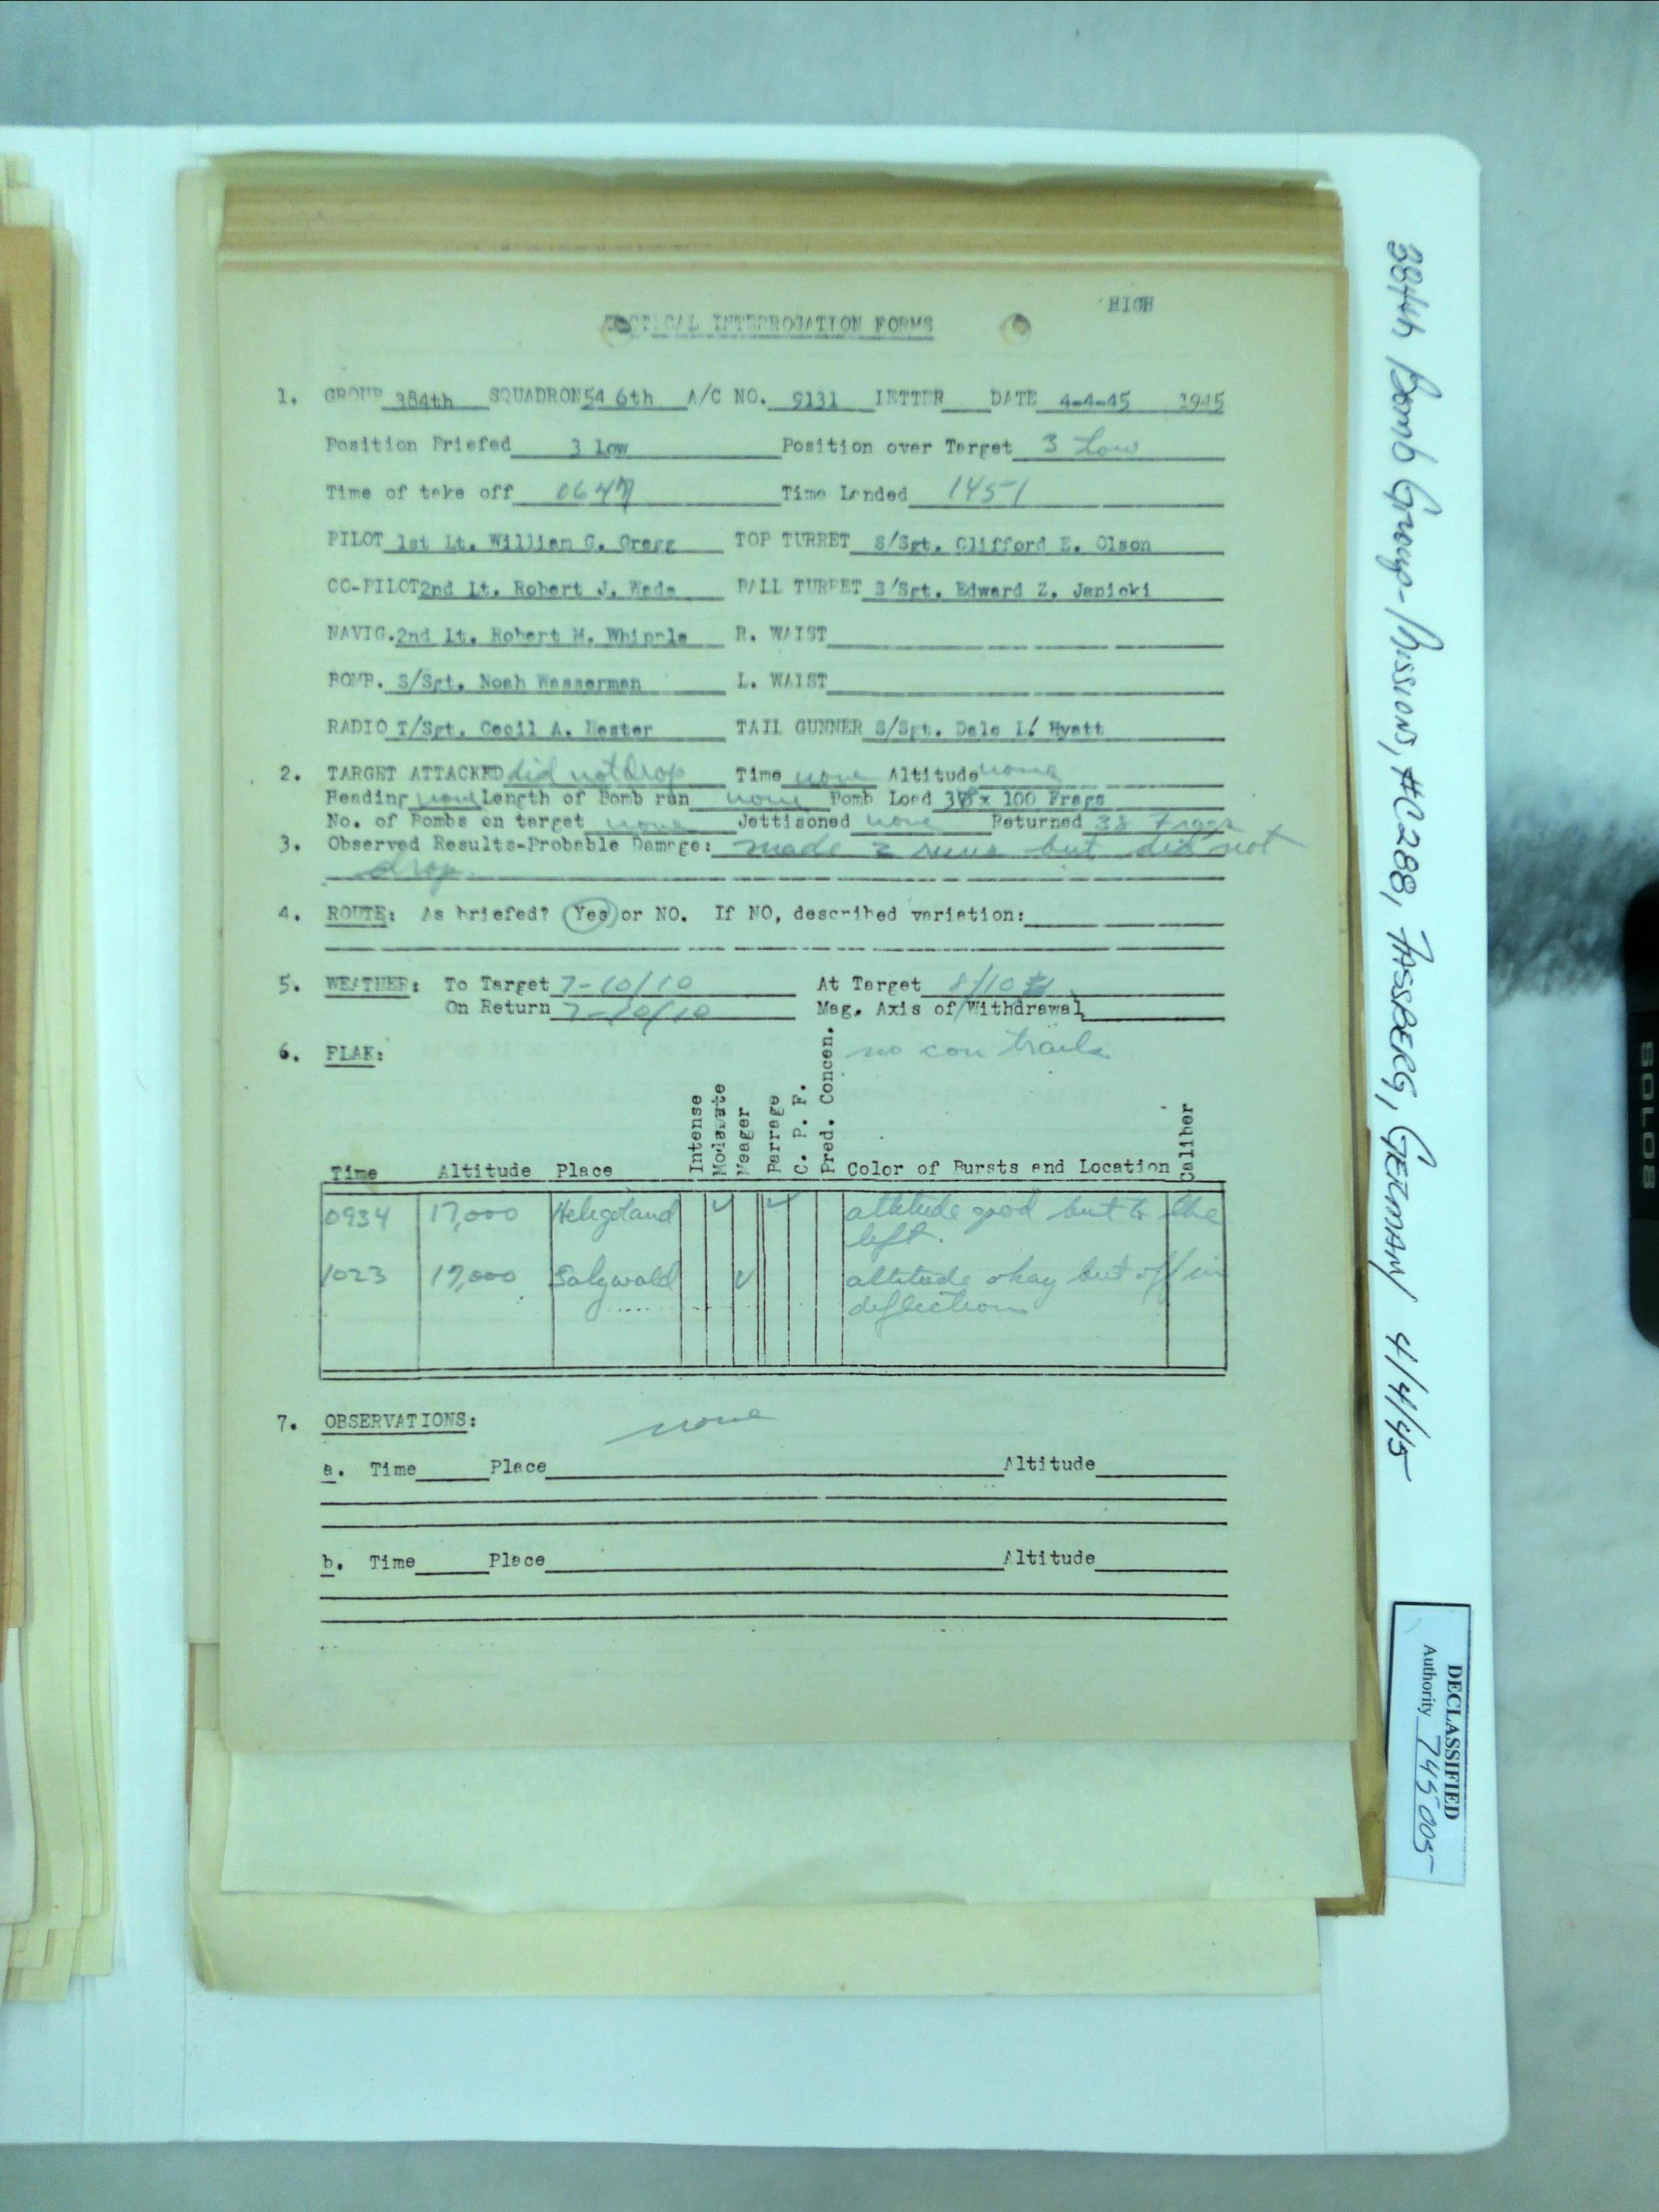 HIGH
TACTICAL INTERROGATION FORMS
1. GROUP 384th SQUADRON 546th A/C NO. 9131 LETTER DATE 4-4-45 1945
Position Briefed 3 Low Position over Target 3 Low
Time of take off 0647 Time Landed 1451
PILOT 1st Lt. William G. Gregg TOP TURRET S/Sgt. Clifford E. Olson
CO-PILOT 2nd Lt. Robert J. Wade BALL TURRET S/Sgt. Edward Z. Janicki
NAVIG. 2nd Lt. Robert M. Whipple R. WAIST
BOMB. S/Sgt. Noah Wasserman L. WAIST
RADIO T/Sgt. Cecil A. Hester TAIL GUNNER S/Sgt. Dale L. Hyatt
2. TARGET ATTACKED did not drop Time none Altitude none
Heading none Length of Bomb run none Bomb Load 38 x 100 Frags
No. of Bombs on target none Jettisoned none Returned 38 Frags
3. Observed Results-Probable Damage: made 2 runs but did not
drop.
4. ROUTE: As briefed? Yes or NO. If NO, described variation:
5. WEATHER: To Target 7-10/10 At Target 8/10
On Return 7-10/10 Mag. Axis of Withdrawal
6. FLAK: no con trails
Time Altitude Place Intense Moderate Meager Barrage C. P. F. Pred. Concen. Color of Bursts and Location Caliber
0934 17,000 Helegoland ✓ ✓ altitude good but to the
left.
1023 17,000 Salzwald ✓ altitude okay but off in
deflection
7. OBSERVATIONS: none
a. Time Place Altitude
b. Time Place Altitude
384th Bomb Group-Missions, #C288, FASSBERG, GERMANY 4/4/45
DECLASSIFIED
Authority 745005
SOLO8